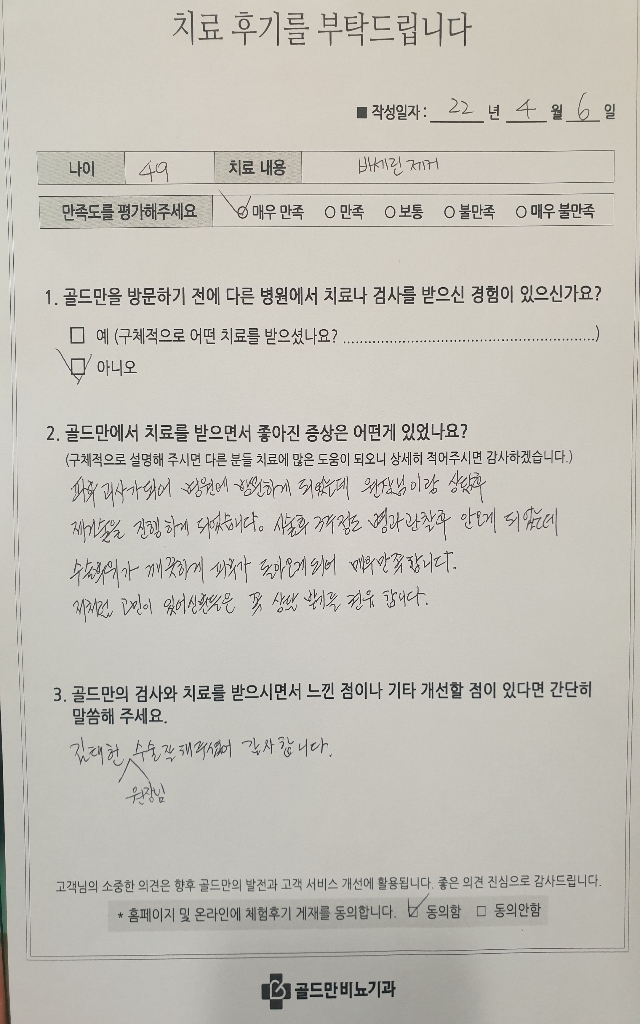 치료 후기를 부탁드립니다
■ 작성일자 : 22 년 4 월 6 일
나이 49 치료 내용 바세린 제거
만족도를 평가해주세요 매우 만족 만족 보통 불만족 매우 불만족
1. 골드만을 방문하기 전에 다른 병원에서 치료나 검사를 받으신 경험이 있으신가요?
예 (구체적으로 어떤 치료를 받으셨나요? ......................................................)
아니오
2. 골드만에서 치료를 받으면서 좋아진 증상은 어떤게 있었나요?
(구체적으로 설명해 주시면 다른 분들 치료에 많은 도움이 되오니 상세히 적어주시면 감사하겠습니다.)
피부 괴사가 되어 병원에 방문하게 되었는데 원장님이랑 상담후
제거술을 진행하게 되었습니다. 시술후 3주정도 경과 관찰후 안오게 되었는데
수술부위가 깨끗하게 피부가 돌아오게되어 매우만족합니다.
저처럼 고민이 있으신분들은 꼭 상담 받기를 권유 합니다.
3. 골드만의 검사와 치료를 받으시면서 느낀 점이나 기타 개선할 점이 있다면 간단히
말씀해 주세요.
김태헌 수술 잘해주셔서 감사합니다.
원장님
고객님의 소중한 의견은 향후 골드만의 발전과 고객 서비스 개선에 활용됩니다. 좋은 의견 진심으로 감사드립니다.
* 홈페이지 및 온라인에 체험후기 게재를 동의합니다. 동의함 동의안함
골드만비뇨기과